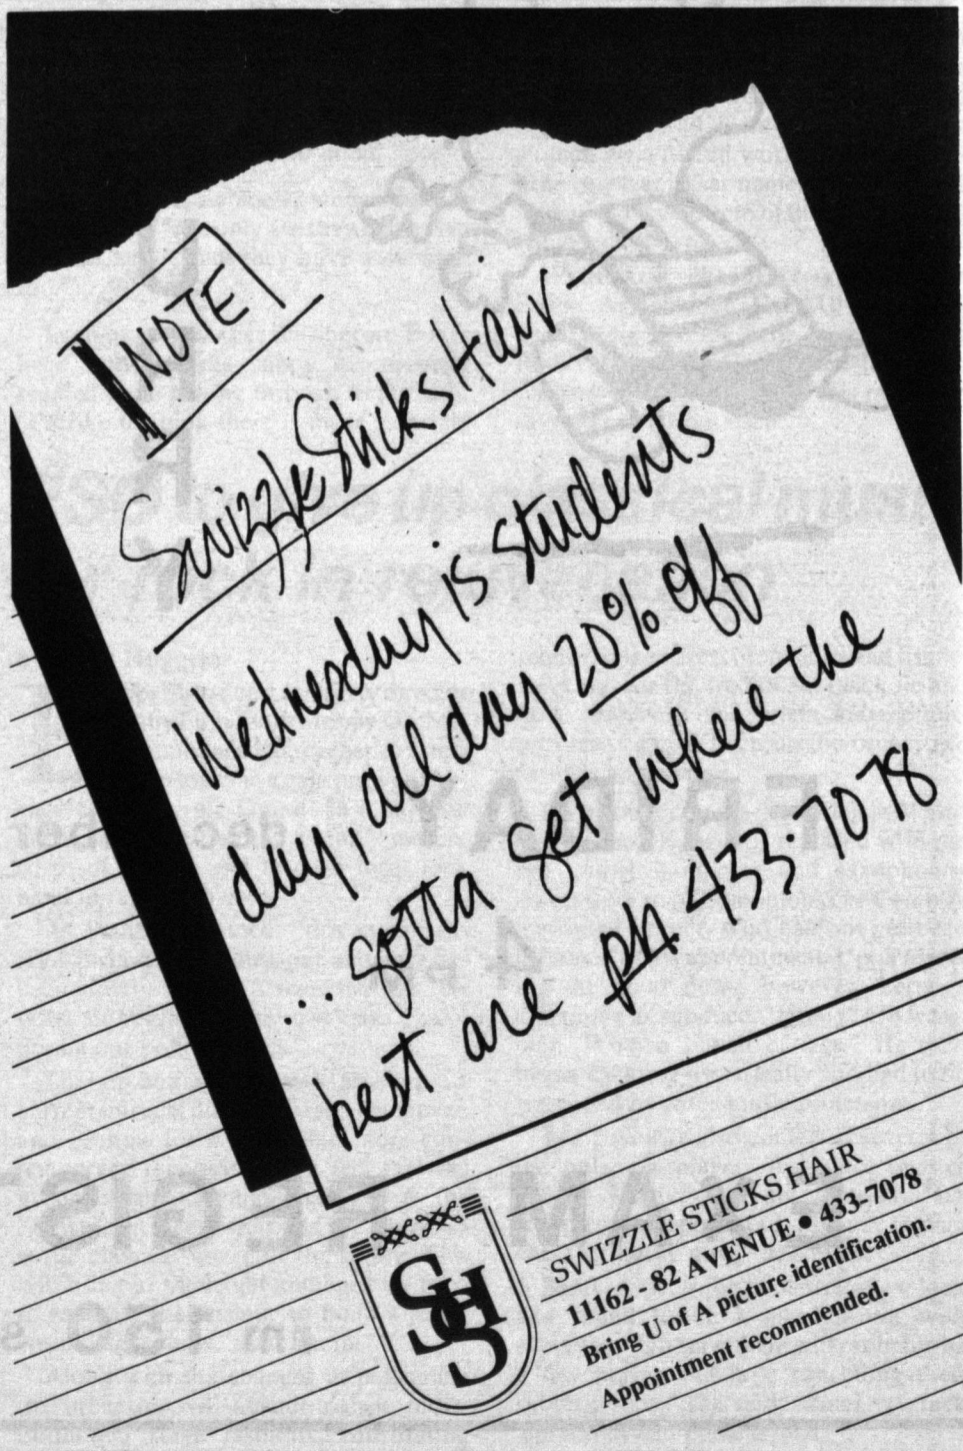 NOTE
Swizzle Sticks Hair—
Wednesday is students
day, all day 20% off
... gotta get where the
best are ph. 433-7078
SHS
SWIZZLE STICKS HAIR
11162 - 82 AVENUE • 433-7078
Bring U of A picture identification.
Appointment recommended.